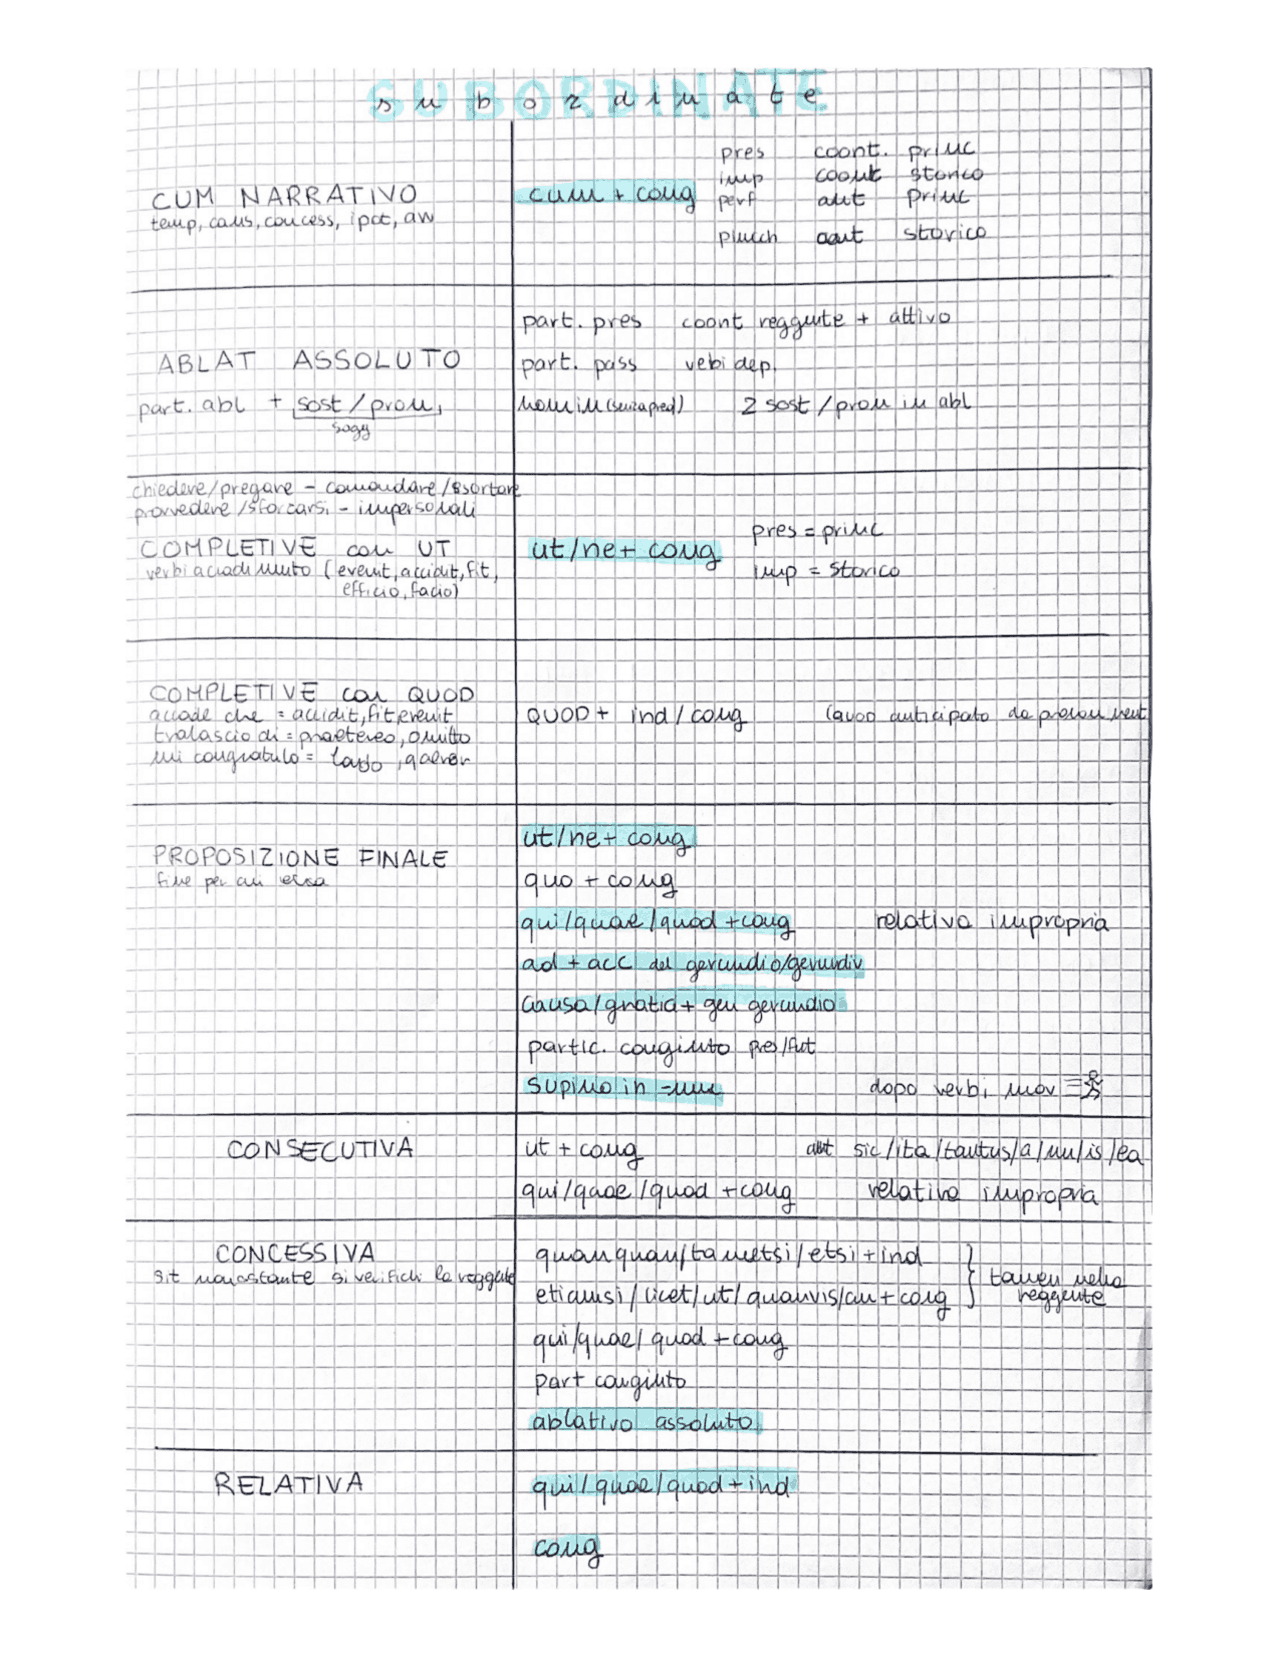 SUBORDINATE
subordinate
CUM NARRATIVO
temp, caus, concess, ipot, avv
cum + cong
pres coont. princ
imp coont storico
perf ant princ
piucch ant storico
ABLAT ASSOLUTO
part. abl + sost / pron
sogg
part. pres coont reggente + attivo
part. pass verbi dep.
nomin (senza pred) 2 sost / pron in abl
chiedere/pregare - comandare /esortare
provvedere /sforzarsi - impersonali
COMPLETIVE con UT
verbi accadimento (evenit, accidit, fit,
efficio, facio)
ut/ne + cong
pres = princ
imp = storico
COMPLETIVE con QUOD
accade che = accidit, fit, evenit
tralascio di = praetereo, omitto
mi congratulo =
QUOD + ind / cong
anticipato da pronom neut
PROPOSIZIONE FINALE
fine per cui essa
ut/ne + cong
quo + cong
qui/quae/quod + cong relativa impropria
ad + acc del gerundio/gerundiv
causa/gratia + gen gerundio
partic. congiunto pres/fut
supino in -um dopo verbi mov
CONSECUTIVA
ut + cong ant sic/ita/tantus/a/um/is/ea
qui/quae/quod + cong relativa impropria
CONCESSIVA
sit nonostante si verifichi la reggente
quanquam/tametsi/etsi + ind
etiamsi/licet/ut/quamvis/cum + cong
tamen nella
reggente
qui/quae/quod + cong
part congiunto
ablativo assoluto
RELATIVA
qui/quae/quod + ind
cong